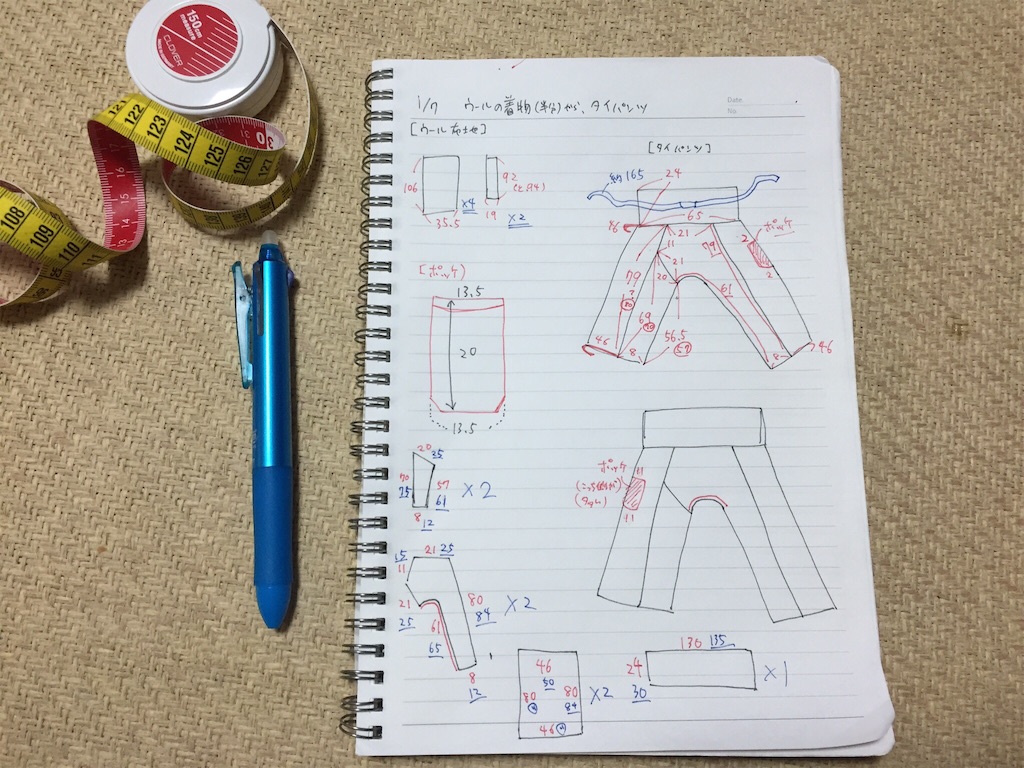 150cm
measure
CLOVER
121
122
123
124
125
126
127
30
108
109
110
17
16
15
14
13
1/7 ウールの着物(半分)から、タイパンツ
Date
No.
[ウール布寸せ]
[タイパンツ]
106
35.5
x4
92
19
x2
紐165
24
65
86
21
11
21
79
79
ポッケ
2
2
20
61
80
69
70
46
8
56.5
57
8
46
[ポッケ]
13.5
20
13.5
20 25
70
75
57
61
8
12
x2
ポッケ
11
11
15
11
21 25
21
25
61
65
80
84
8
12
x2
46
50
80
80
84
46
x2
130 135
24
30
x1